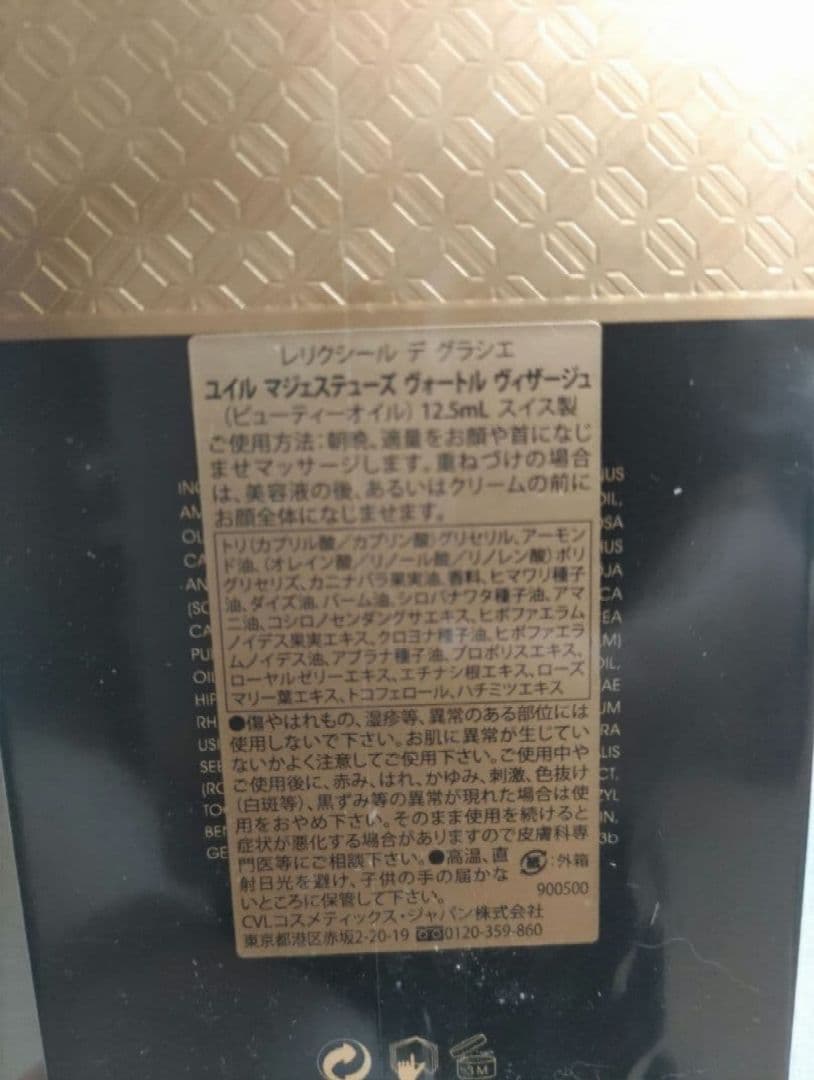 レリクシール デ グラシエ
ユイル マジェステューズ ヴォートル ヴィザージュ
(ビューティーオイル) 12.5mL スイス製
ご使用方法:朝晩、適量をお顔や首になじ
ませマッサージします。重ねづけの場合
は、美容液の後、あるいはクリームの前に
お顔全体になじませます。
トリ(カプリル酸/カプリン酸)グリセリル、アーモン
ド油、(オレイン酸/リノール酸/リノレン酸)ポリ
グリセリズ、カニナバラ果実油、香料、ヒマワリ種子
油、ダイズ油、パーム油、シロバナワタ種子油、アマ
ニ油、コシロノセンダングサエキス、ヒポファエラム
ノイデス果実エキス、クロヨナ種子油、ヒポファエラ
ムノイデス油、アブラナ種子油、プロポリスエキス、
ローヤルゼリーエキス、エチナシ根エキス、ローズ
マリー葉エキス、トコフェロール、ハチミツエキス
●傷やはれもの、湿疹等、異常のある部位には
使用しないで下さい。お肌に異常が生じてい
ないかよく注意してご使用下さい。ご使用中や
ご使用後に、赤み、はれ、かゆみ、刺激、色抜け
(白斑等)、黒ずみ等の異常が現れた場合は使
用をおやめ下さい。そのまま使用を続けると
症状が悪化する場合がありますので皮膚科専
門医等にご相談下さい。●高温、直
射日光を避け、子供の手の届かな
いところに保管して下さい。
紙:外箱
900500
CVLコスメティックス・ジャパン株式会社
東京都港区赤坂2-20-19 0120-359-860
3M